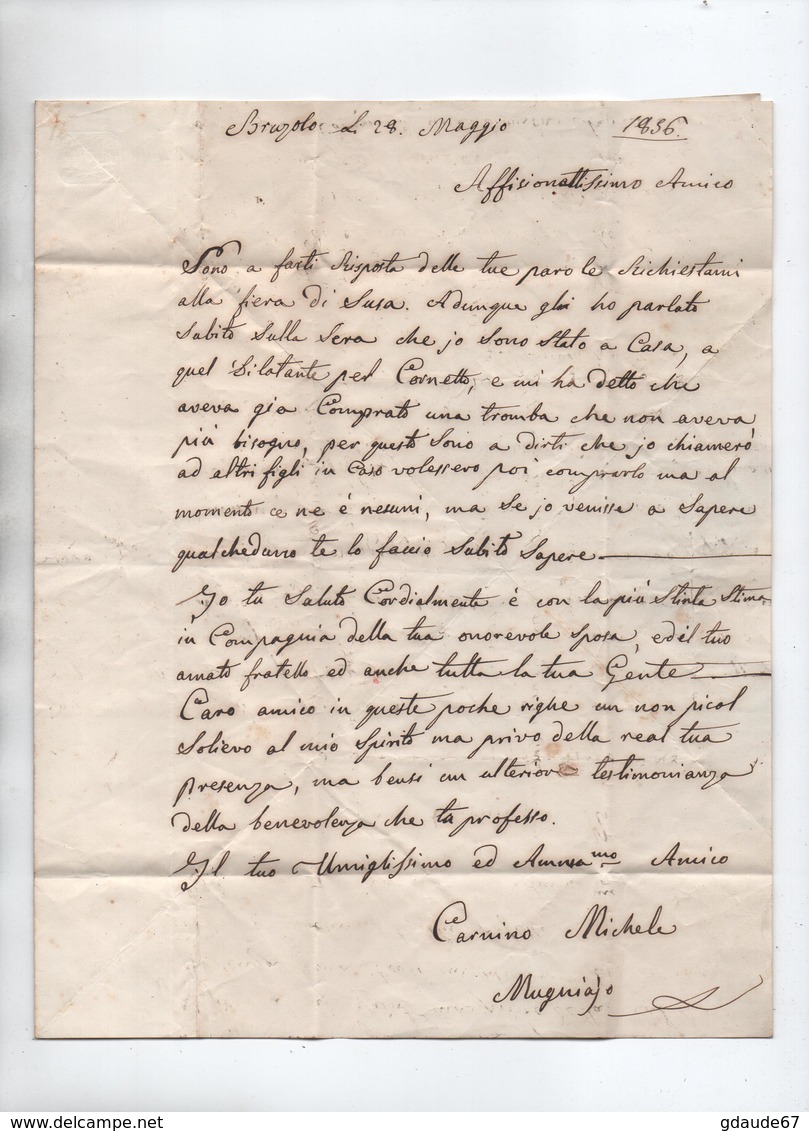 Bruzolo Li 28. Maggio 1856.
Affisionattissimo Amico
Sono a farti Risposta delle tue parole Richiestami
alla fiera di Susa. Adunque gli ho parlato
Subito Sulla Sera che jo Sono Stato a Casa, a
quel Dilatante pel Cornetto, e mi ha detto che
aveva gia Comprato una tromba che non aveva
più bisogno, per questo Sono a dirti che jo chiamerò
ad altri figli in Caso volessero poi comprarlo ma al
momento ce ne é nesuni, ma Se jo venisse a Sapere
qualcheduno te lo faccio Subito Sapere
Jo tu Saluto Cordialmente é con la più Stinta Stima
in Compagnia della tua onorevole Sposa, ed il tuo
amato fratello ed anche tutta la tua Gente
Caro amico in queste poche righe un non picol
Solievo al mio Spirito ma privo della real tua
presenza, ma bensi un ulteriore testimonianza
della benevolenza che ty professo.
Jl tuo Umiglissimo ed Amma.mo Amico
Carnino Michele
Mugniajo
delcampe.net
gdaude67